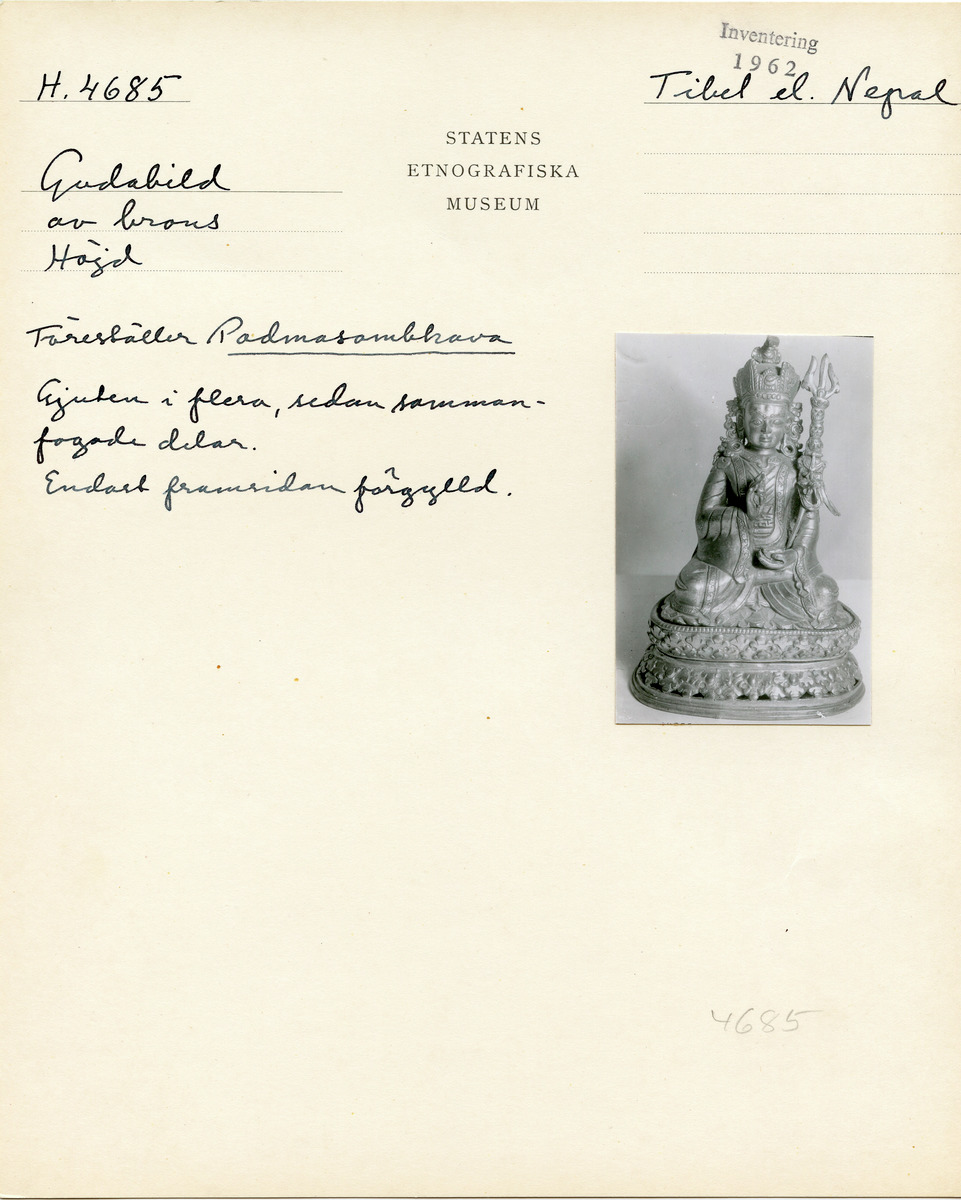 Inventering
1962
H. 4685
Tibet el. Nepal
STATENS
ETNOGRAFISKA
MUSEUM
Gudabild
av brons
Höjd
Föreställer Padmasambhava
Gjuten i flera, sedan samman-
fogade delar.
Endast framsidan förgylld.
4685